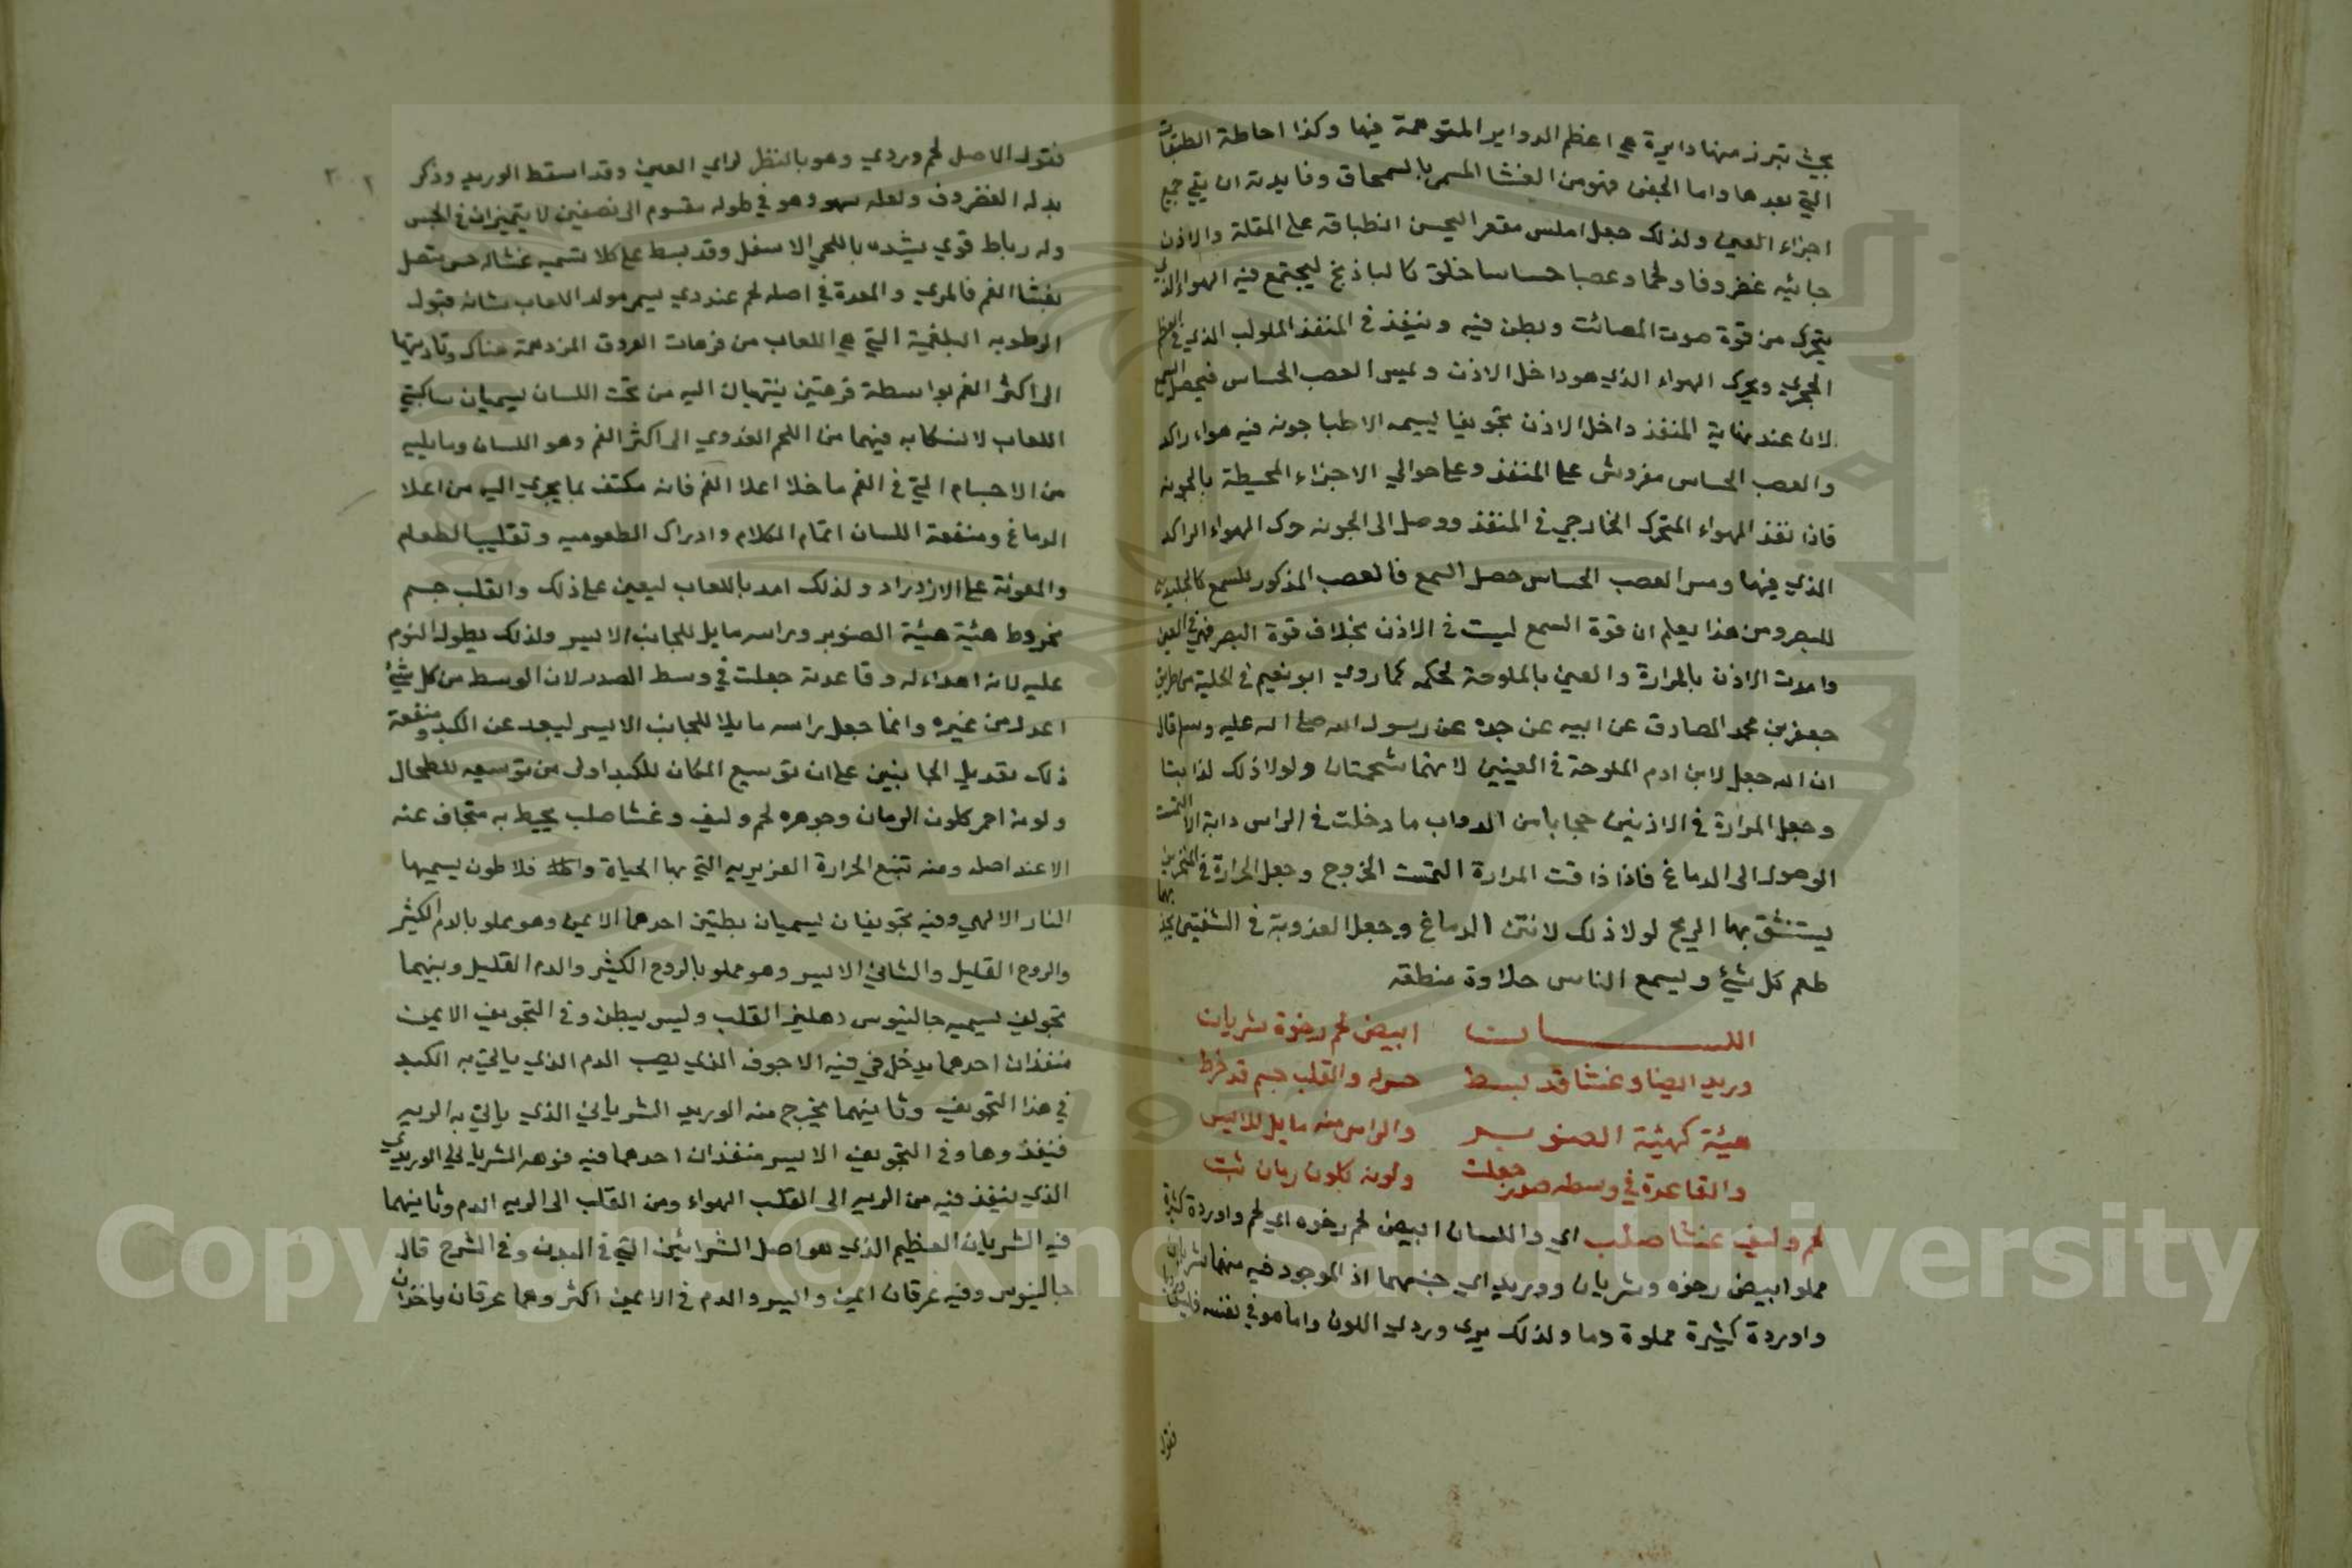 بحيث تبرز منها دايرة هي اعظم الدواير المتوهمة فيها وكذا احاطة الطبقات
التي بعدها واما الجفن فهو من الغشا المسمى بالسمحاق وفايدته ان يقي جميع
اجزاء العين ولذلك جعل املس مقعر اليحسن انطباقه على المقلة والاذن
جائيه غضروفا ولحما وعصبا حساسا خلق كالباذنج ليجتمع فيه الهواء الذي
يتحرك من قوة صوت المصائت ويطن فيه وينفذ في المنفذ الملولب الذي في العظم
الحجري ويحرك الهواء الذي هو داخل الاذن ويميس العصب الحساس فيحصل السمع
لان عند نهاية المنفذ داخل الاذن تجويفا يسميه الاطبا جونه فيه هواء راكد
والعصب الحساس مفروش على المنفذ وعلى حوالي الاجزاء المحيطة بالجونه
فاذا نفذ الهواء المتحرك الخارجي في المنفذ ووصل الى الجونه حرك الهواء الراكد
الذي فيها ومس العصب الحساس حصل السمع فالعصب المذكور للسمع كالجليديه
للبصر ومن هذا يعلم ان قوة السمع ليست في الاذن بخلاف قوة البصر فهي في العين
وامدت الاذن بالمرارة والعين بالملوحة لحكمه كما روى ابو نعيم في الحلية من طريق
جعفر بن محمد الصادق عن ابيه عن جده عن رسول الله صلى الله عليه وسلم قال
ان الله جعل لابن ادم الملوحة في العينين لانهما شحمتان ولولا ذلك لذابتا
وجعل المرارة في الاذنين حجابا من الدواب ما دخلت في الراس دابة الا التمست
الوصول الى الدماغ فاذا ذاقت المرارة التمست الخروج وجعل الحرارة في المنخرين
يستنشق بها الريح لولا ذلك لانتن الدماغ وجعل العذوبة في الشفتين يجد بهما
طعم كل شيء ويسمع الناس حلاوة منطقه
اللسان ابيض لحم رخوة شريان
وريد ايضا وغشا قد بسط حوله والقلب جسم قد خرط
هيئة كهيئة الصنوبر والراس منه مايل للايسر
والقاعدة في وسطه صدر جعلت ولونه كلون رمان ثبت
لحم وليف غشا صلب اي واللسان ابيض لحم رخوه اي لحم واوردة كثيرة
مملو ابيض رخوه وشريان ووريد اي جنسهما اذ الموجود فيه منهما شريان
واوردة كثيرة مملوة دما ولذلك يرى وردي اللون واما هو في نفسه فابيض
فنقول
فنقول الاصل لحم وردي وهو بالنظر لراي العين وقد اسقط الوريد وذكر
بدله الغضروف ولعله سهو وهو في طوله مقسوم الى نصفين لا يتميزان في الحس
وله رباط قوي يشده باللحي الاسفل وقد بسط على كلا تسميه غشاله حسن يتصل
بغشا الفم فالمري والمعدة في اصله لحم غددي يسمى مولد اللعاب شانه قبول
الرطوبه البلغمية التي هي اللعاب من فوهات العروق المزدحمة هناك وتاديتها
الى اكثر الفم بواسطة فوهتين ينتهيان اليه من تحت اللسان يسميان ساكبتي
اللعاب لانسكابه فيهما من اللحم الغددي الى اكثر الفم وهو اللسان ومايليه
من الاجسام التي في الفم ما خلا اعلا الفم فانه مكتف بما يجري اليه من اعلا
الدماغ ومنفعة اللسان اتمام الكلام وادراك الطعوميه وتقليب الطعام
والمعونة على الازدراد ولذلك امد باللعاب ليعين على ذلك والقلب جسم
مخروط هيئة هيئة الصنوبر وراسه مايل للجانب الايسر ولذلك يطول النوم
عليه لانه اهداء له وقاعدته جعلت في وسط الصدر لان الوسط من كل شيء
اعدل من غيره وانما جعل راسه مايلا للجانب الايسر ليبعد عن الكبد ومنفعة
ذلك تعديل الجانبين على ان توسيع المكان للكبد اولى من توسيعه للطحال
ولونه احمر كلون الرمان وجوهره لحم وليف وغشا صلب يحيط به متجاف عنه
الا عند اصله ومنه تنبع الحرارة الغريزيه التي بها الحياة فلاطون يسميها
النار الالهي وفيه تجويفان يسميان بطنين احدهما الايمن وهو مملو بالدم الكثير
والروح القليل والثاني الايسر وهو مملو بالروح الكثير والدم القليل وبينهما
تجويف يسميه جالينوس دهليز القلب وليس ببطن وفي التجويف الايمن
منفذان احدهما يدخل في فيه الاجوف الذي يصب الدم الذي ياتي به الكبد
في هذا التجويف وثانيهما يخرج منه الوريد الشرياني الذي ياتي به الريه
فينفذ وها وفي التجويف الايسر منفذان احدهما فيه فوهه الشرياني الوريدي
الذي ينفذ فيه من الريه الى القلب الهواء ومن القلب الى الريه الدم وثانيهما
فيه الشريان العظيم الذي هو اصل الشرائين التي في البدن وفي الشرح قال
جالينوس وفيه عرقان ايمن وايسر والدم في الايمن اكثر وهما عرقان ياخذان
Copyright © King Saud University